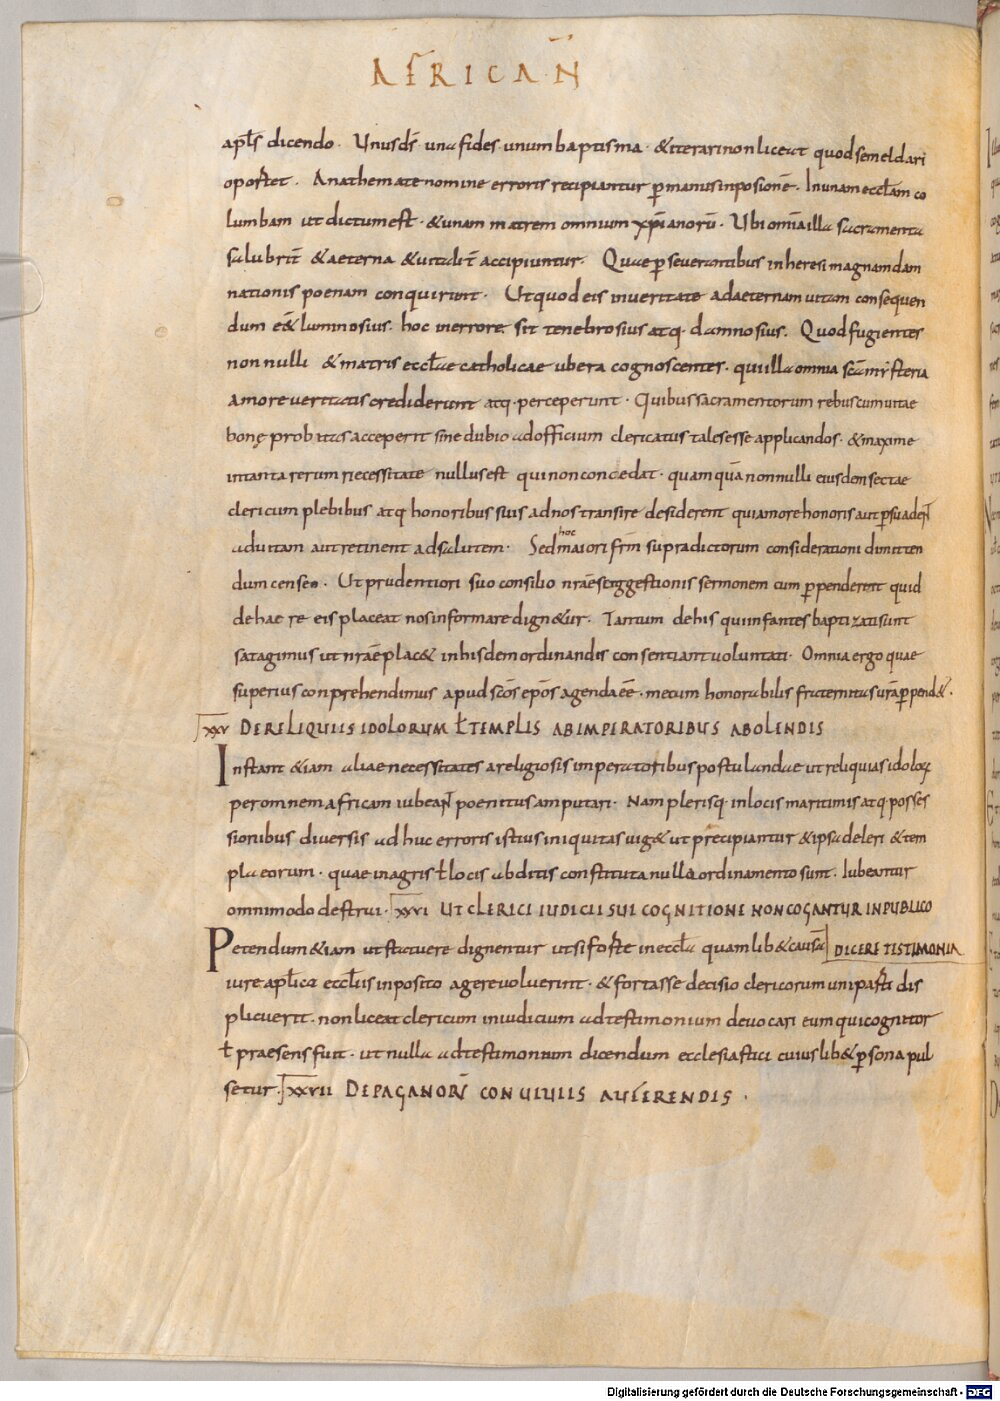 AFRICAÑ
apl̄s dicendo. Unus d̄s una fides unum baptisma. & iterari non liceat quod semel dari
oportet. Anathemate nomine erroris recipiantur p̱ manus inposionē. In unam eccl̄am co
lumbam ut dictum est. & unam matrem omnium xp̄ianorū. Ubi omīa illa sacramenta
salubrit̄ & aeterna & uitalit̄ accipiuntur. Quae p̱seuerantibus in heresi magnam dam
nationis poenam conquirunt. Ut quod eis in ueritate ad aeternam uitam consequen
dum eēt luminosius. hoc in errore sit tenebrosius atq. damnosius. Quod fugientes
non nulli & matris eccl̄ae catholicae ubera cognoscentes. qui illa omnia scā mysteria
amore ueritatis crediderunt atq. perceperunt. Quibus sacramentorum rebus cum uitae
bonę probitas acceperit sine dubio ad officium clericatus tales esse applicandos. & maxime
in tanta rerum necessitate nullus est qui non concedat. quamquā non nulli eiusdem sectae
clericum plebibus atq honoribus suis ad nos transire desiderent qui amore honoris aut p̱suadeñ
ad uitam aut retinent ad salutem. Sed hoc maiori frm̄ supradictorum considerationi dimitten
dum censeo. Ut prudentiori suo consilio nr̄ae suggestionis sermonem cum p̱penderent quid
de hac re eis placeat nos informare dign&ur. Tantum de his qui infantes baptizati sunt
satagimus ut nr̄ae plac& in hisdem ordinandis consentiant uoluntati. Omnia ergo quae
superius conprehendimus apud sc̄os ep̄os agenda eē. mecum honorabilis fraternitas ur̄a p̱pend&.
xxv DE RELIQUIIS IDOLORUM ł TEMPLIS AB IMPERATORIBUS ABOLENDIS
Instant &iam aliae necessitates a religiosis imperatoribus postulandae ut reliquias idoloꝝ
per omnem africam iubeañ poenitus amputari. Nam plerisq. in locis maritimis atq. posses
sionibus diuersis ad huc erroris istius iniquitas uig& ut precipiantur & ipsa deleri & tem
pla eorum. quae in agris ł locis abditis constituta nullo ordinamento sunt. Iubeantur
omnimodo destrui. xxvi UT CLERICI IUDICII SUI COGNITIONI NON COGANTUR IN PUBLICO
Petendum &iam ut statuere dignentur ut si forte in eccl̄a quamlib& causā DICERE TESTIMONIA
iure apl̄ico eccl̄iis inposito agere uoluerint. & fortasse decisio clericorum uni parti dis
plicuerit. non liceat clericum in iudicium ad testimonium deuocari eum qui cognitor
ł praesens fuit. ut nulla ad testimonium dicendum ecclesiastici cuiuslib& p̱sona pul
setur. xxvii DE PAGANORŪ CONUIUIIS AUFERENDIS.
Digitalisierung gefördert durch die Deutsche Forschungsgemeinschaft - DFG